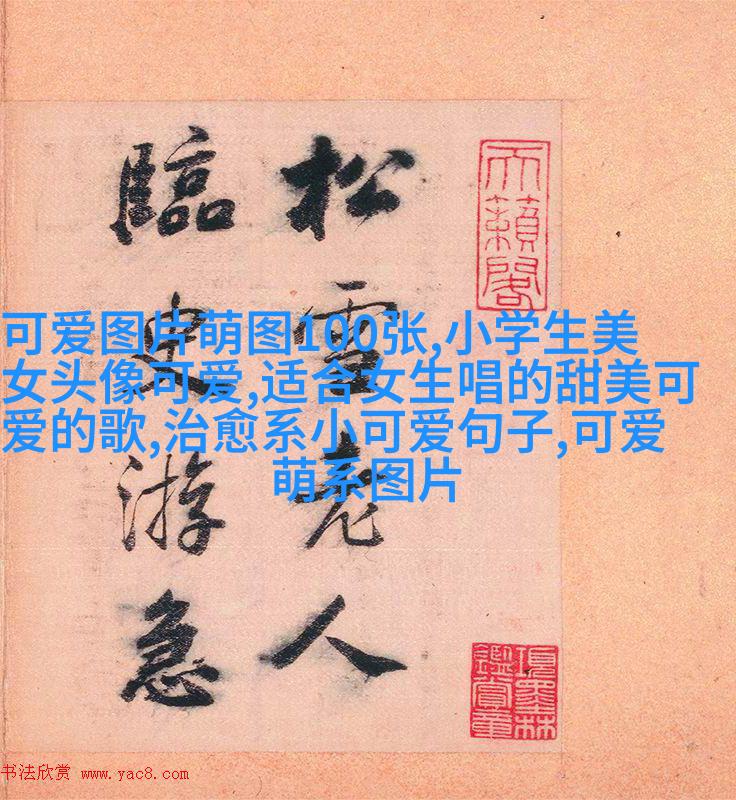 天籟閣
松雪老人
臨史游急
項墨林
鑑賞章
可爱图片萌图100张,小学生美
女头像可爱,适合女生唱的甜美可
爱的歌,治愈系小可爱句子,可爱
萌系图片
书法欣赏 www.yac8.com